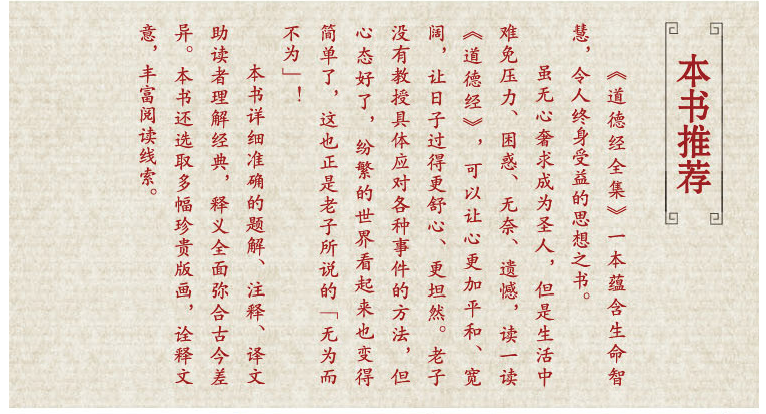 本书推荐
《道德经全集》一本蕴含生命智
慧，令人终身受益的思想之书。
虽无心奢求成为圣人，但是生活中
难免压力、困惑、无奈、遗憾，读一读
《道德经》，可以让心更加平和、宽
阔，让日子过得更舒心、更坦然。老子
没有教授具体应对各种事件的方法，但
心态好了，纷繁的世界看起来也变得
简单了，这也正是老子所说的「无为而
不为」！
本书详细准确的题解、注释、译文
助读者理解经典，释义全面弥合古今差
异。本书还选取多幅珍贵版画，诠释文
意，丰富阅读线索。